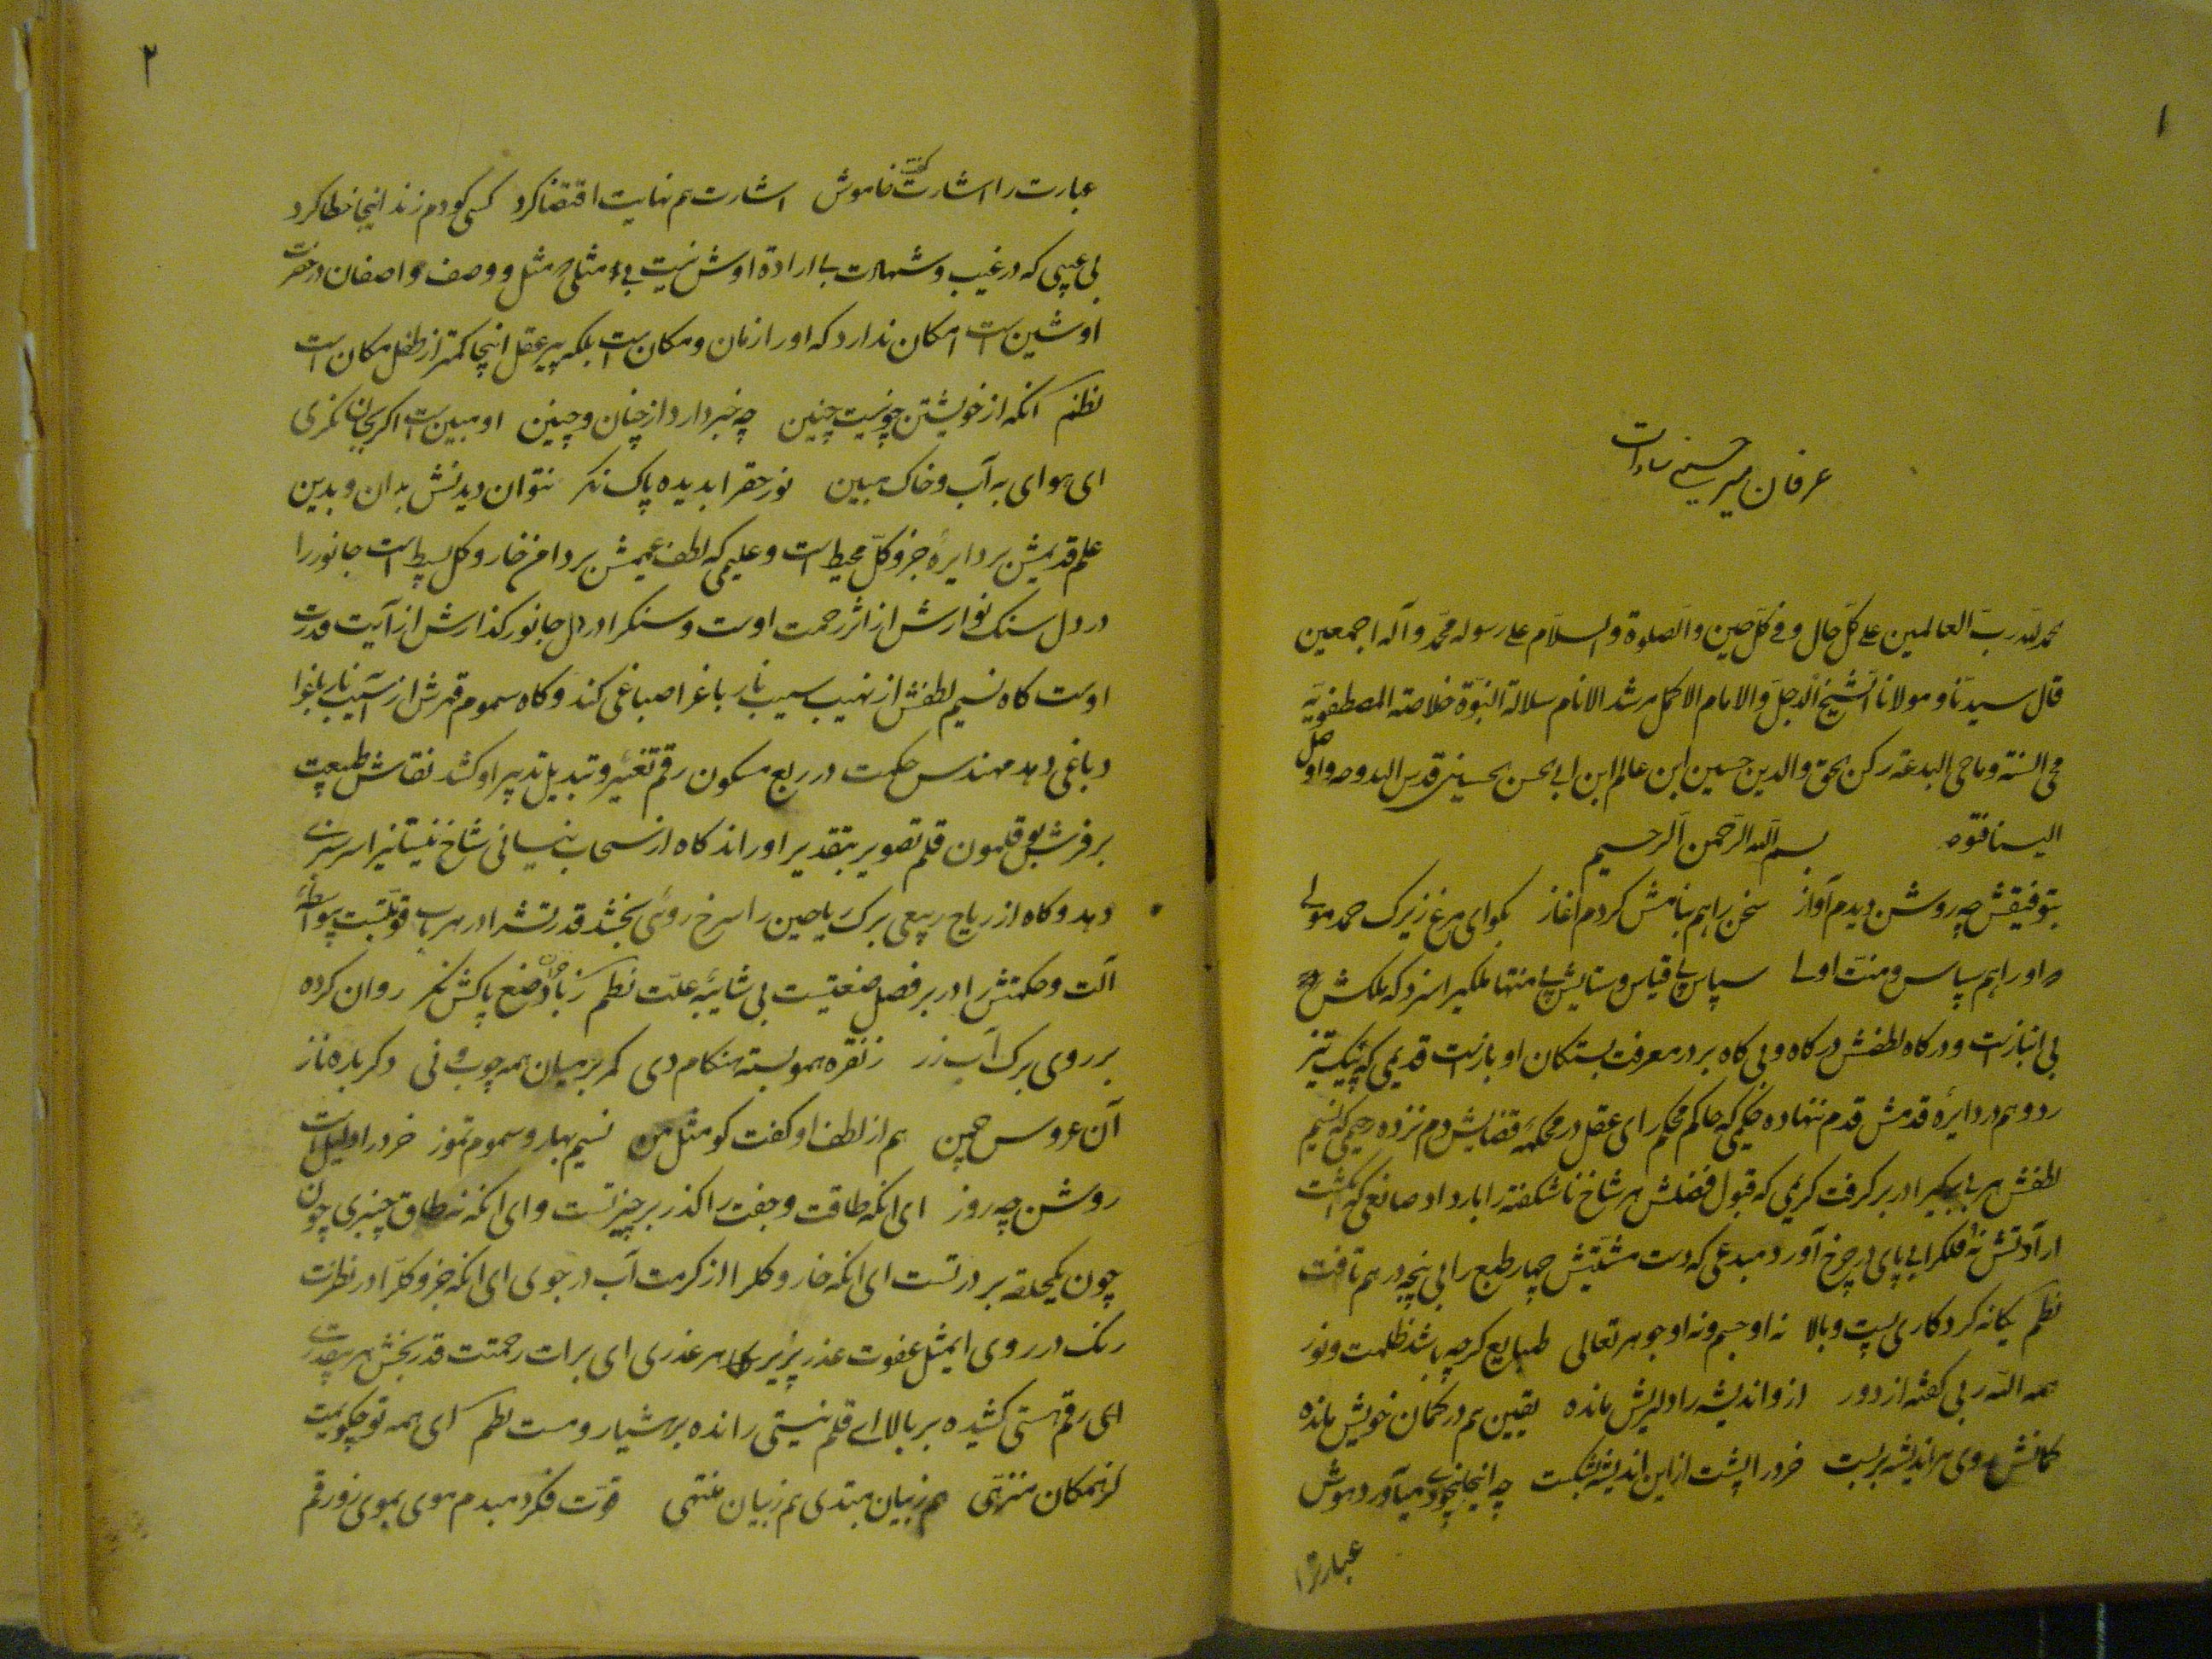 ۱
عرفان میر حسینی سادات
الحمدلله رب العالمین علی کل حال و فی کل حین والصلوة والسلام علی رسوله محمد وآله اجمعین
قال سیدنا و مولانا الشیخ الاجل والامام الاکمل مرشد الانام سلالة النبوة خلاصة المصطفویة
محی السنة و ماحی البدعة رکن الحق والدین حسین ابن عالم ابن ابی الحسن الحسینی قدس الله روحه و اوصل
الینا فتوحه بسم الله الرحمن الرحیم
بتوفیقش چه روشن دیدم آواز سخن را هم بنامش کردم آغاز بگو ای مرغ زیرک حمد مولی
که او را هم سپاس و منت اولی سپاس بی قیاس و ستایش بی منتها ملکی را سزد که ملکش
بی انبازست و درگاه لطفش در گاه و بی گاه بر در معرفت بستگان او بازست قدیمی که پیک تیز
رو وهم در دایرهٔ قدمش قدم ننهاده حکیمی که حاکم محکم رای عقل در محکمهٔ قضایش دم نزده رحیمی که نسیم
لطفش هر بی برگی را در بر گرفت کریمی که قبول فضلش هر شاخ ناشکفته را بار داد صانعی که انگشت
ارادتش نه فلک را بی پای در چرخ آورد مبدعی که دست مشیتش چهار طبع را بی پنجه در هم تافت
نظم یگانه کردگاری پست و بالا نه او جسم و نه او جوهر تعالی طبایع گرچه باشد ظلمت و نور
همه الله ربی گفته از دور ازو اندیشه را دل ریش مانده یقین هم در گمان خویش مانده
کمانش روی هر اندیشه بر بست خرد را پشت ازین اندیشه بشکست چه اینجا بیخودی می‌آورد هوش
عبارترا
۲
عبارت را اشارت گفت خاموش اشارت هم نهایت اقتضا کرد کسی کو دم زند اینجا خطا کرد
بی عیبی که در غیب و شهادت با ارادهٔ اوش نیست بی مثلی مثل و وصف واصفان در حضرت
اوشین است امکان ندارد که او را زمان و مکان است بلکه پیر عقل اینجا کمتر از طفل مکان است
نظم آنکه از خویشتن چو نیست چنین چه خبر دارد از چنان و چنین او مبین است اگر بجان نگری
ای هوای به آب و خاک مبین نور حق را بدیده پاک نگر نتوان دیدنش بدان و بدین
علم قدیمش بر دایرهٔ جزو کل محیط است و علیمی که لطف عمیمش بر دامن خار و گل بسیط است جانور را
در دل سنک نوازش از اثر رحمت اوست و سنگ را در دل جانور گذارش از آیت قدرت
اوست گاه نسیم لطفش از نهیب سیب نار باغ را صباغی کند و گاه سموم قهرش از آسیب نار باغ را
دباغی دهد مهندس حکمت در ربع مسکون رقم تغییر و تبدیل بتدبیر او کشد نقاش طبیعت
بر فرش بوقلمون قلم تصویر بتقدیر او راند گاه از سحاب نیسانی شاخ نیستان را سرسبزی
دهد و گاه از ریاح ربیعی برک ریاحین را سرخ روئی بخشد قدرتش را در هر باب قوتیست بی واسطهٔ
آلت و حکمتش را در هر فصل صنعتیست بی شایبهٔ علت نظم صنع پاکش نگر روان کرده
بر روی برک آب زر ز نقره همو بسته هنگام دی کمر بر میان همه چوب و نی دگر باره ناز
آن عروس چمن هم از لطف او گفت کو مثل من نسیم بهار و سموم تموز خرد را دلیل است
روشن چه روز ای آنکه طاقت و جفت را گذر بر چیز تست و ای آنکه نه طاق چنبری چون
چون یک حلقه بر در تست ای آنکه خار و گل را از کرمت آب در جوی ای آنکه جزو کل را در نظرت
رنگ در روی ای مثل عفوت عذر پذیر هر عذری ای برات رحمتت قدر بخش هر بیقدری
ای رقم هستی کشیده بر بالا ای قلم نیستی رانده بر هشیار و مست نظم ای همه تو چگویمت
کز همگان منزهی هم ز بیان مبتدی هم ز بیان منتهی قوت فکر دمبدم موی بموی زو رقم